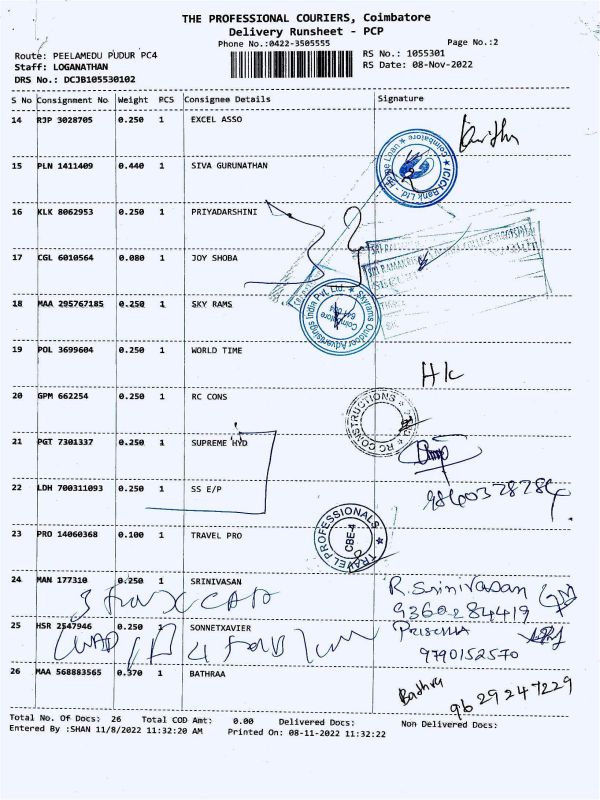 THE PROFESSIONAL COURIERS, Coimbatore
Delivery Runsheet - PCP
Phone No.:0422-3505555
Page No.:2
Route: PEELAMEDU PUDUR PC4
RS No.: 1055301
Staff: LOGANATHAN
RS Date: 08-Nov-2022
DRS No.: DCJB105530102
S No Consignment No Weight PCS Consignee Details Signature
14 RJP 3028705 0.250 1 EXCEL ASSO
ICICI Bank Ltd. Home Loan Coimbatore
15 PLN 1411409 0.440 1 SIVA GURUNATHAN
16 KLK 8062953 0.250 1 PRIYADARSHINI
17 CGL 6010564 0.080 1 JOY SHOBA
18 MAA 295767185 0.250 1 SKY RAMS
Skyrams Outdoor Advertisings India Pvt. Ltd. Coimbatore 641 004
19 POL 3699604 0.250 1 WORLD TIME
20 GPM 662254 0.250 1 RC CONS
RC CONSTRUCTIONS
21 PGT 7301337 0.250 1 SUPREME HYD
22 LDH 700311093 0.250 1 SS E/P
23 PRO 14060368 0.100 1 TRAVEL PRO
TRAVEL PROFESSIONALS CBE-4
24 MAN 177310 0.250 1 SRINIVASAN
R. Srinivasan
9360284419
25 HSR 2547946 0.250 1 SONNETXAVIER
9790152570
26 MAA 568883565 0.370 1 BATHRAA
Bathra
9629247229
Total No. Of Docs: 26 Total COD Amt: 0.00 Delivered Docs: Non Delivered Docs:
Entered By :SHAN 11/8/2022 11:32:20 AM Printed On: 08-11-2022 11:32:22